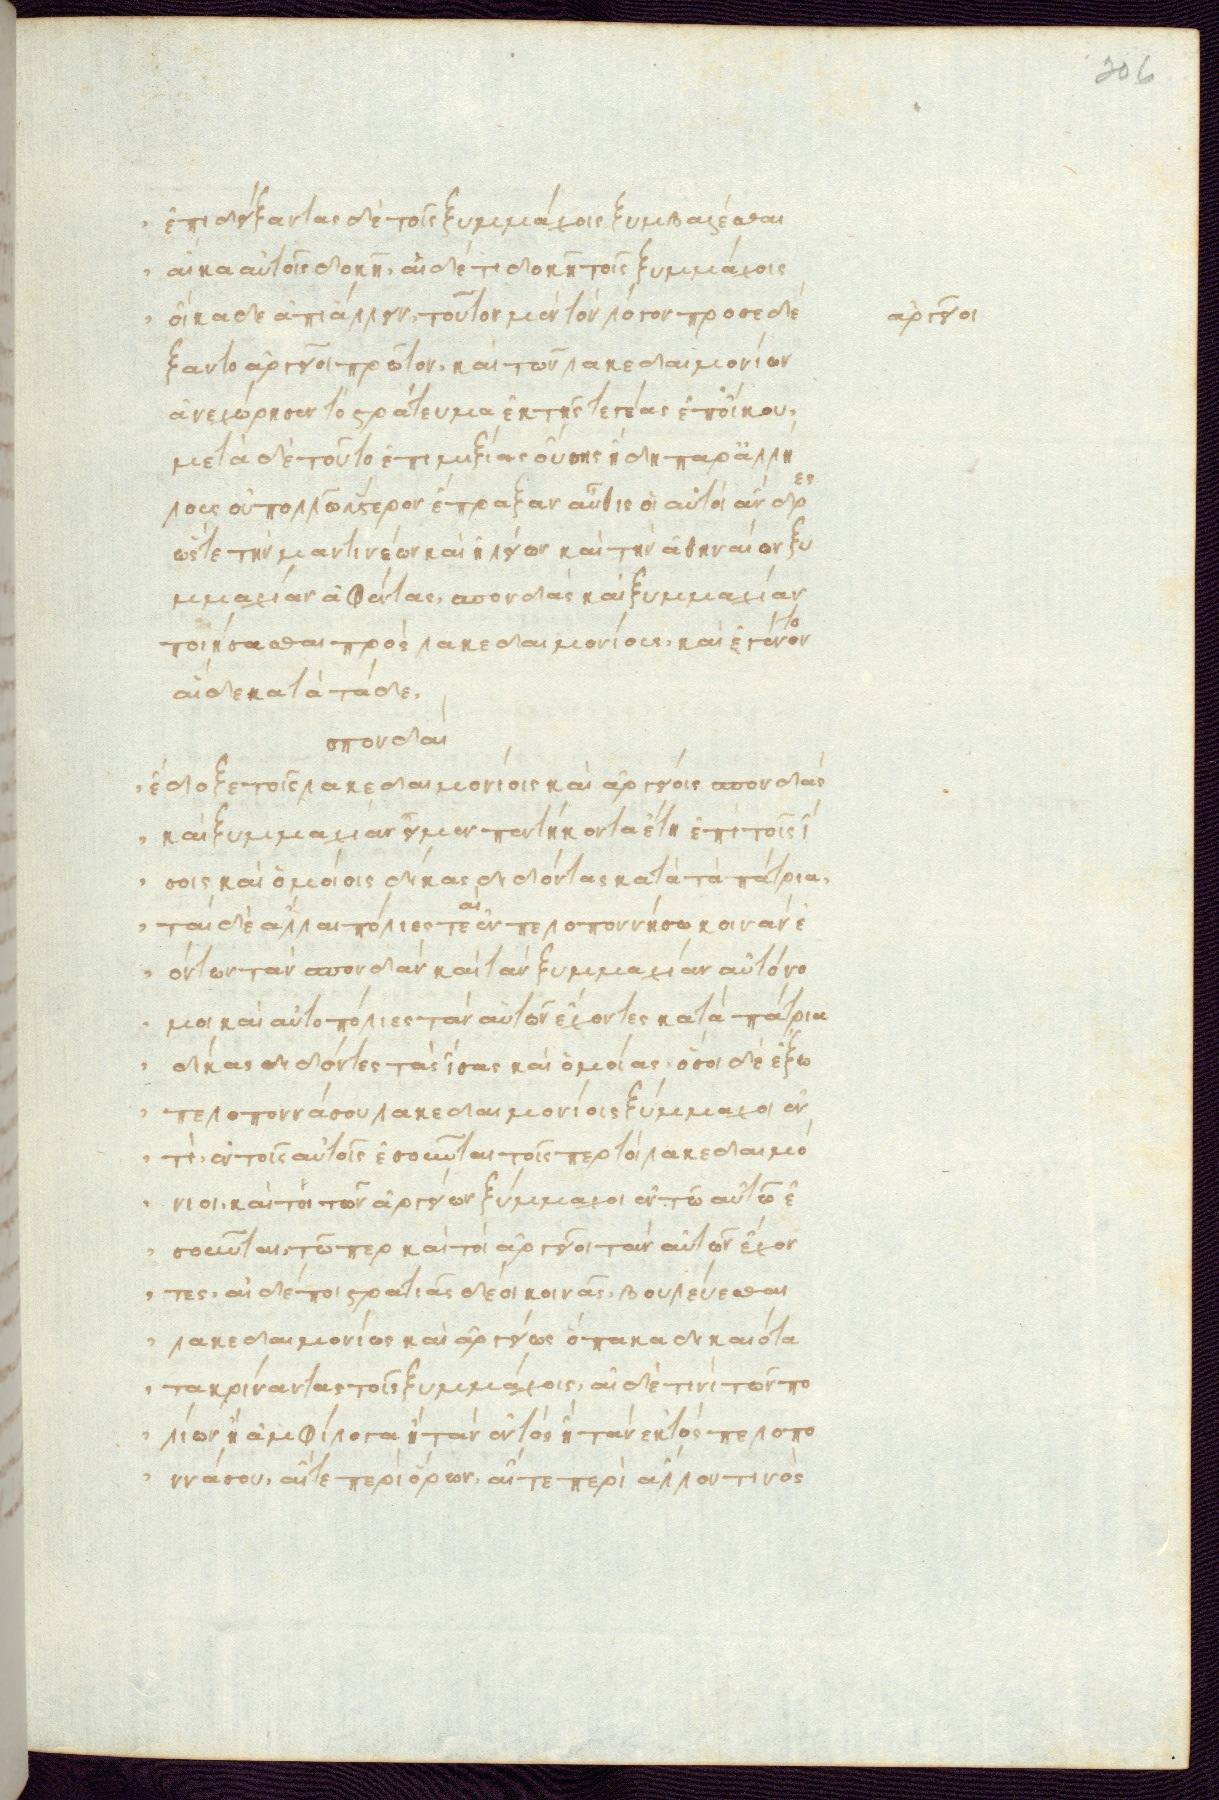 206
ἐπιδείξαντας δὲ τοῖς ξυμμάχοις ξυμβαλέσθαι
αἴ κα αὐτοῖς δοκῆ, αἰ δέ τι δοκῆ τοῖς ξυμμάχοις
οἴκαδε ἀπιάλλειν, τοῦτον μὲν τὸν λόγον προσεδέ
ἀργεῖοι
ξαντο ἀργεῖοι πρῶτον, καὶ τῶν λακεδαιμονίων
ἀνεχώρησεν τὸ στράτευμα ἐκ τῆς τεγέας ἐπ' οἴκου,
μετὰ δὲ τοῦτο ἐπιμιξίας οὔσης ἤδη παρ' ἀλλή
λους οὐ πολλῶ ὕστερον ἔπραξαν αὖθις οἱ αὐτοὶ ἄνδρες
ὥστε τὴν μαντινέων καὶ ἠλείων καὶ τὴν ἀθηναίων ξυ
μμαχίαν ἀφέντας, σπονδὰς καὶ ξυμμαχίαν
ποιήσασθαι πρὸς λακεδαιμονίους, καὶ ἐγένοντο
αἵδε κατὰ τάδε,
σπονδαὶ
ἔδοξε τοῖς λακεδαιμονίοις καὶ ἀργείοις σπονδὰς
καὶ ξυμμαχίαν εἶμεν πεντήκοντα ἔτη ἐπὶ τοῖς ἴ
σοις καὶ ὁμοίοις δίκας διδόντας κατὰ τὰ πάτρια,
ταὶ δὲ ἄλλαι πόλιες ταὶ ἐν πελοποννήσω κοινὰν ἐ
όντων τᾶν σπονδᾶν καὶ τᾶν ξυμμαχίαν αὐτόνο
μοι καὶ αὐτοπόλιες τὰν αὐτῶν ἔχοντες κατὰ πάτρια
δίκας διδόντες τὰς ἴσας καὶ ὁμοίας, ὅσοι δὲ ἔξω
πελοποννάσου λακεδαιμονίοις ξύμμαχοι ἐν
τὶ, ἐν τοῖς αὐτοῖς ἐσσοῦνται τοῖς περ τοὶ λακεδαιμό
νιοι, καὶ τοὶ τῶν ἀργείων ξύμμαχοι ἐν τῶ αὐτῶ ἐ
σοῦνται, τῶ περ καὶ τοὶ ἀργεῖοι τὰν αὐτῶν ἔχον
τες, αἰ δέ ποι στρατιᾶς δέοι κοινᾶς, βουλεύεσθαι
λακεδαιμονίως καὶ ἀργείως ὅπα κα δικαιότα
τα κρίναντας τοῖς ξυμμάχοις, αἰ δέ τινι τῶν πο
λίων ἦ ἀμφίλογα ἢ τὰν ἐντὸς ἢ τὰν ἐκτὸς πελοπο
ννάσου, αἴτε περὶ ὅρων, αἴτε περὶ ἄλλου τινὸς